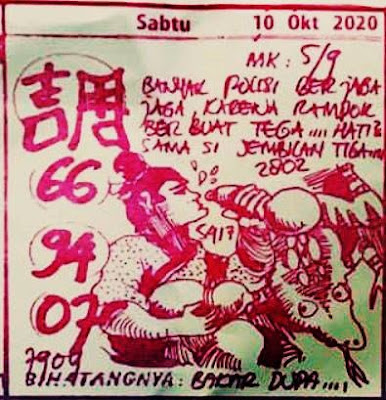 Sabtu 10 Okt 2020
MK: 5/9
BANYAK POLISI BERJAGA
JAGA, KARENA RAMPOK
BERBUAT TEGA.... HATI²
SAMA SI JEMBULAN TIGA....
2802
66
5917
94
07
7909
BINATANGNYA: BAKAR DUPA....